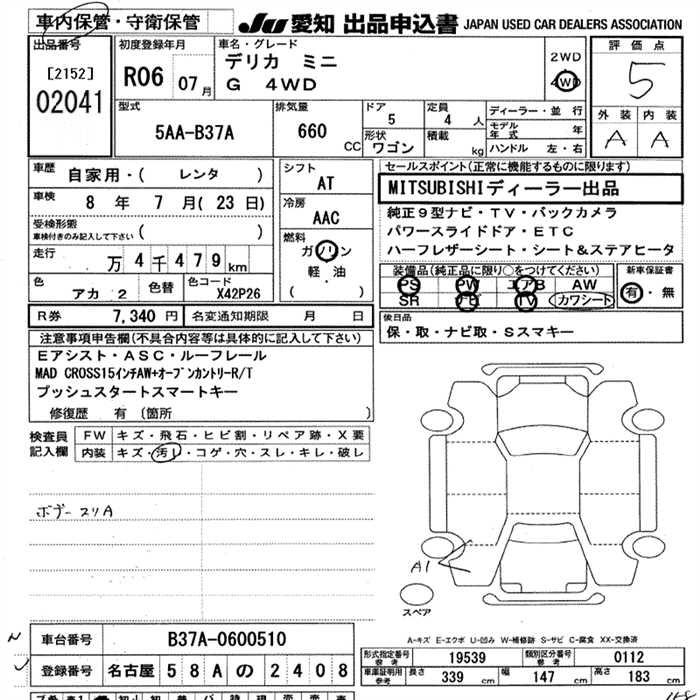 車内保管・守衛保管
JU 愛知 出品申込書 JAPAN USED CAR DEALERS ASSOCIATION
出品番号
[2152]
02041
初度登録年月
R06 07月
車名・グレード
デリカ ミニ
G 4WD
2WD
4WD
評価点
5
外装 内装
A A
型式
5AA-B37A
排気量
660 CC
ドア
5
定員
4 人
形状
ワゴン
積載
kg
ディーラー・並行
モデル年式 年
ハンドル 左・右
車歴 自家用・( レンタ )
車検 8年 7月(23日)
受検形態
車検付きのみ記入して下さい ( )
走行 万4千479km
色 アカ 2 色替 色コード X42P26
シフト
AT
冷房
AAC
燃料
ガソリン
軽・油
( )
セールスポイント(正常に機能するものに限ります)
MITSUBISHIディーラー出品
純正9型ナビ・TV・バックカメラ
パワースライドドア・ETC
ハーフレザーシート・シート&ステアヒータ
装備品(純正品に限り○をつけてください)
PS PW エアB AW
SR ナビ TV カワシート
新車保証書
有・無
R券 7,340円 名変通知期限 月 日
後日品
保・取・ナビ取・Sスマキー
注意事項申告欄(不具合内容等は具体的に記入して下さい)
Eアシスト・ASC・ルーフレール
MAD CROSS15インチAW+オープンカントリーR/T
プッシュスタートスマートキー
修復歴 有 (箇所 )
検査員記入欄
FW キズ・飛石・ヒビ割・リペア跡・X要
内装 キズ・汚れ・コゲ・穴・スレ・キレ・破し
ボデー スリA
A1
スペア
A-キズ E-エクボ U-凹み W-補修跡 S-サビ C-腐食 XX-交換済
車台番号 B37A-0600510
登録番号 名古屋58Aの2408
形式指定番号 参考 19539 類別区分番号 参考 0112
車庫証明用 参考 長さ 339 cm 幅 147 cm 高さ 183 cm